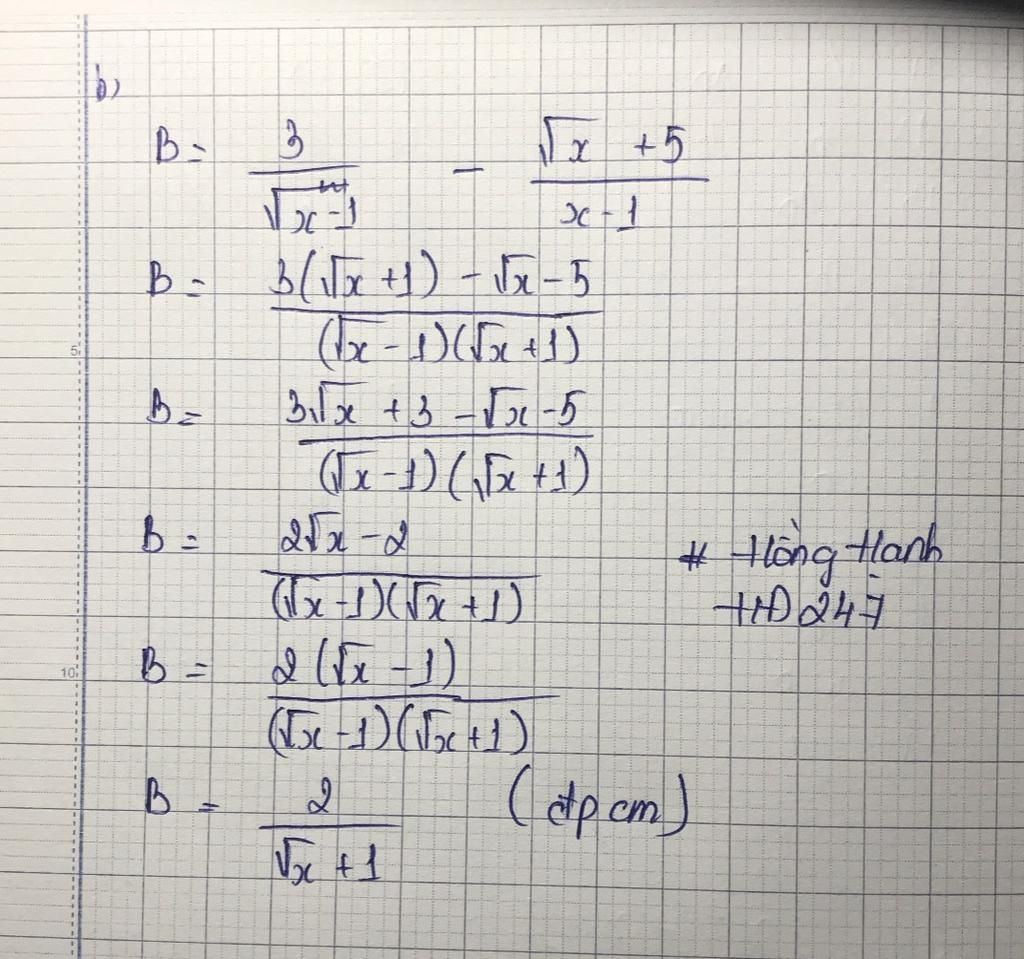 b)
B = 3/(√x - 1) - (√x + 5)/(x - 1)
B = (3(√x + 1) - √x - 5)/((√x - 1)(√x + 1))
5
B = (3√x + 3 - √x - 5)/((√x - 1)(√x + 1))
B = (2√x - 2)/((√x - 1)(√x + 1))
# Hồng Hạnh
HĐ247
10
B = (2(√x - 1))/((√x - 1)(√x + 1))
B = 2/(√x + 1) (đpcm)